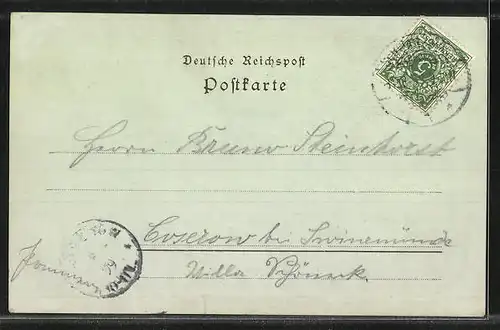 Deutsche Reichspost
Postkarte
5
Herrn Bruno Steinhorst
Coserow bei Swinemünde
Villa Schöneck.
99